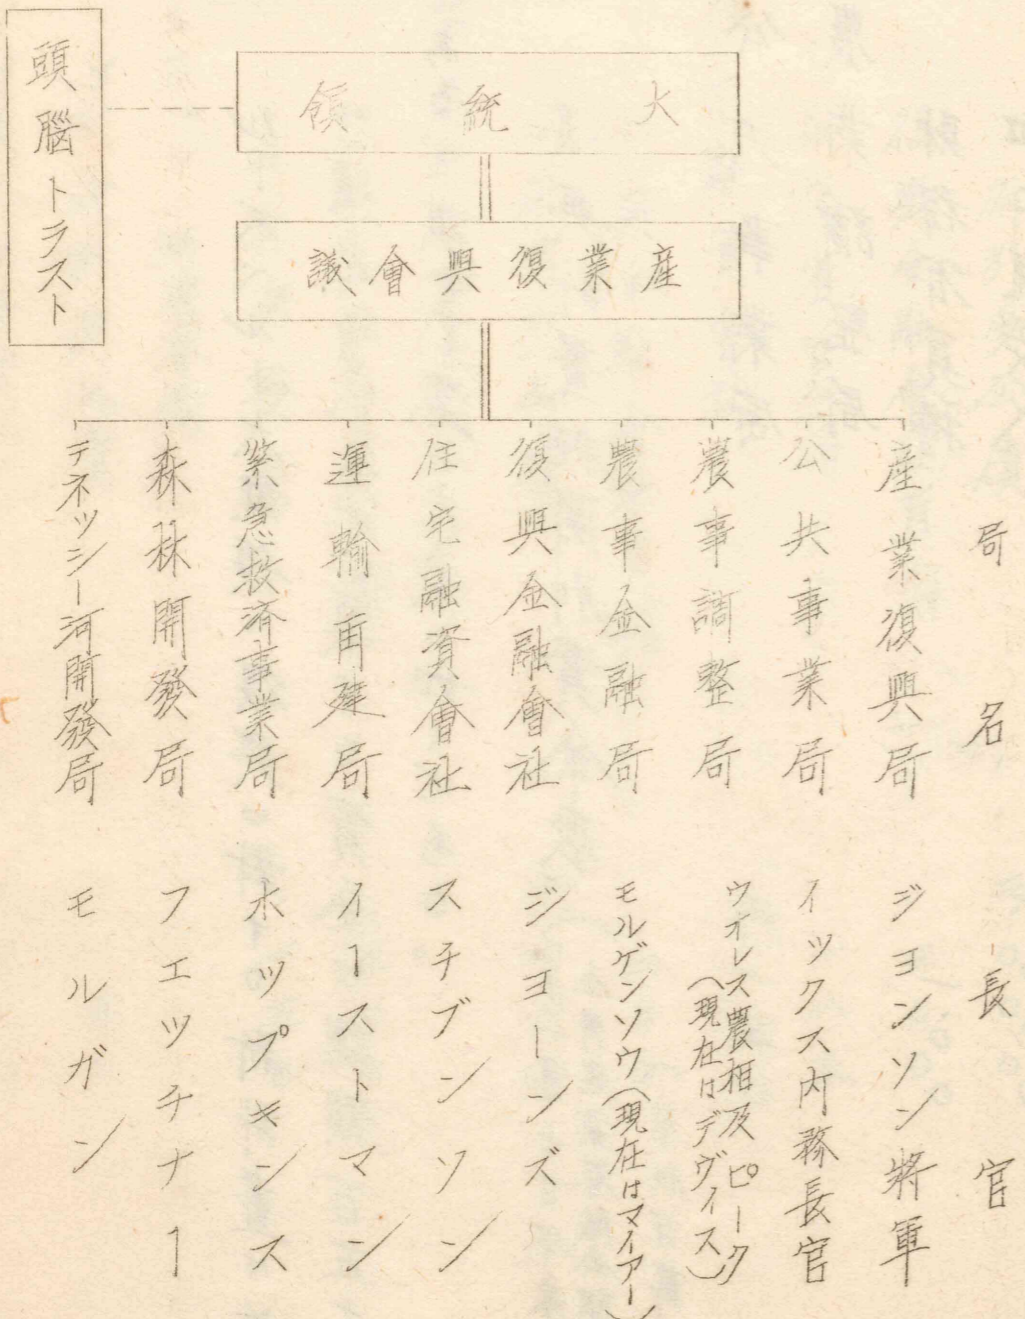 頭腦トラスト
大統領
産業復興會議
局名 長官
産業復興局 ジヨンソン將軍
公共事業局 イツクス内務長官
農事調整局 ウオレス農相及ピーク
(現在はデヴィス)
農事金融局 モルゲンソウ(現在はマイアー)
復興金融會社 ジヨーンズ
住宅融資會社 スチブンソン
運輸再建局 イーストマン
緊急救濟事業局 ホツプキンス
森林開發局 フエツチナー
テネツシー河開發局 モルガン